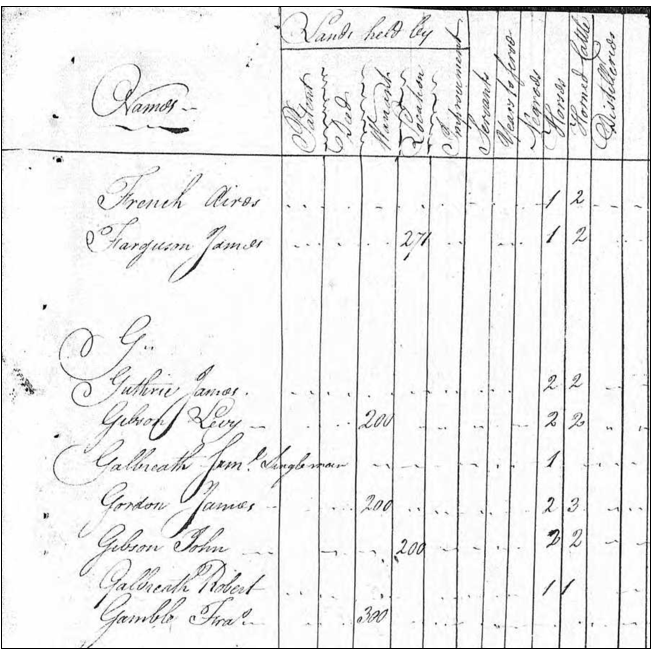 Lands held by
Names
Patent
Deed
Warrant
Location
Improvement
Servants
Years to Serve
Negroes
Horses
Horned Cattle
Distilleries
French Aires 1 2
Farguson James 271 1 2
G
Guthrie James 2 2
Gibson Levy 200 2 2
Galbreath Saml. Single man 1
Gordon James 200 2 3
Gibson John 200 2 2
Galbreath Robert 1 1
Gamble Fras. 300